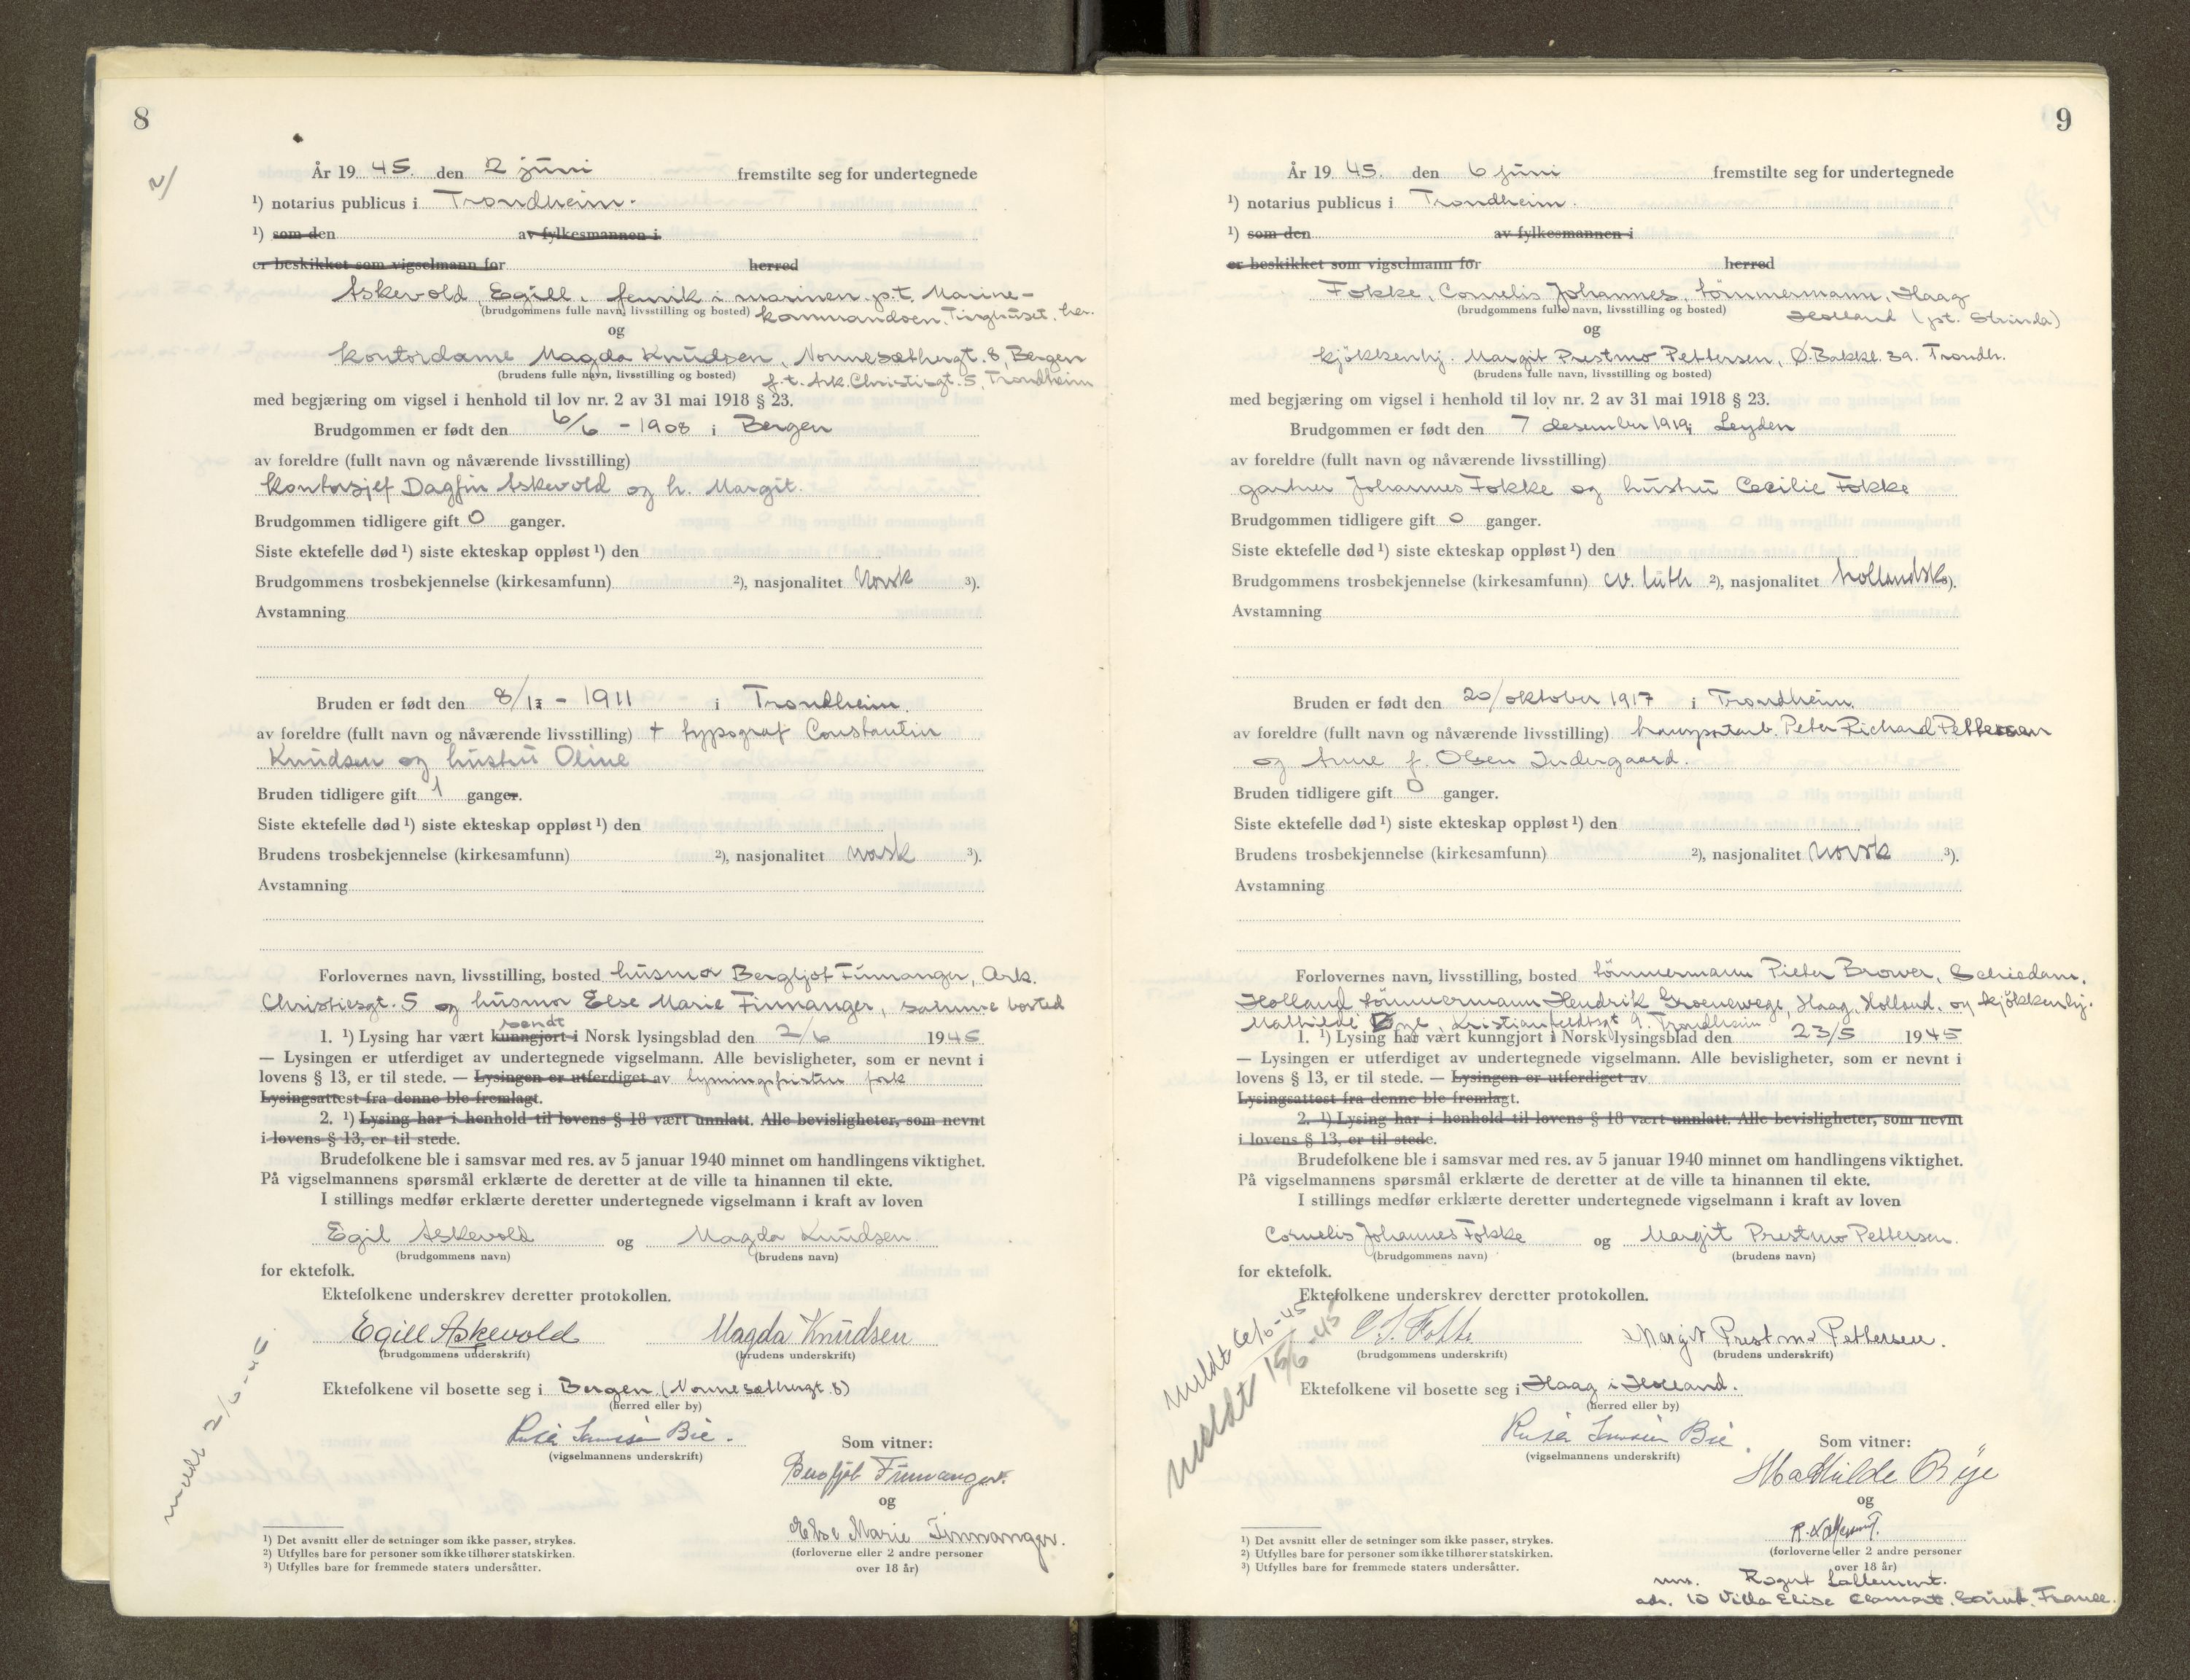 8
2/
År 19 45. den 2 juni fremstilte seg for undertegnede
¹) notarius publicus i Trondheim.
¹) som den av fylkesmannen i
er beskikket som vigselmann for herred
Askevold, Egill, fenrik i marinen p.t. Marine-
(brudgommens fulle navn, livsstilling og bosted) kommandoen, Tinghuset, her.
og
kontordame Magda Knudsen, Nonnesætbergt. 8, Bergen
(brudens fulle navn, livsstilling og bosted) f.t. Ark. Christiegt. 5, Trondheim
med begjæring om vigsel i henhold til lov nr. 2 av 31 mai 1918 § 23.
Brudgommen er født den 6/6 - 1908 i Bergen
av foreldre (fullt navn og nåværende livsstilling)
kontorsjef Dagfin Askevold og h. Margit.
Brudgommen tidligere gift 0 ganger.
Siste ektefelle død ¹) siste ekteskap oppløst ¹) den
Brudgommens trosbekjennelse (kirkesamfunn) ²), nasjonalitet Norsk ³).
Avstamning
Bruden er født den 8/ - 1911 i Trondheim.
av foreldre (fullt navn og nåværende livsstilling) + typograf Constantin
Knudsen og hustru Oline
Bruden tidligere gift 1 ganger.
Siste ektefelle død ¹) siste ekteskap oppløst ¹) den
Brudens trosbekjennelse (kirkesamfunn) ²), nasjonalitet norsk ³).
Avstamning
Forlovernes navn, livsstilling, bosted husmor Bergljot Finnanger, Ark.
Christiesgt. 5 og husmor Else Marie Finnanger, samme bosted
sendt
1. ¹) Lysing har vært kunngjort i Norsk lysingsblad den 2/6 1945
— Lysingen er utferdiget av undertegnede vigselmann. Alle bevisligheter, som er nevnt i
lovens § 13, er til stede. — Lysingen er utferdiget av lysningsfristen fork
Lysingsattest fra denne ble fremlagt.
2. ¹) Lysing har i henhold til lovens § 18 vært unnlatt. Alle bevisligheter, som nevnt
i lovens § 13, er til stede.
Brudefolkene ble i samsvar med res. av 5 januar 1940 minnet om handlingens viktighet.
På vigselmannens spørsmål erklærte de deretter at de ville ta hinannen til ekte.
I stillings medfør erklærte deretter undertegnede vigselmann i kraft av loven
Egil Askevold og Magda Knudsen
(brudgommens navn) (brudens navn)
for ektefolk.
Ektefolkene underskrev deretter protokollen.
Egill Askevold Magda Knudsen
(brudgommens underskrift) (brudens underskrift)
Ektefolkene vil bosette seg i Bergen (Nonnesætbergt. 8)
(herred eller by)
Bie.
(vigselmannens underskrift)
Som vitner:
Bergljot Finnanger.
og
Else Marie Finnanger.
(forloverne eller 2 andre personer
over 18 år)
meldt 2/6-45
¹) Det avsnitt eller de setninger som ikke passer, strykes.
²) Utfylles bare for personer som ikke tilhører statskirken.
³) Utfylles bare for fremmede staters undersåtter.
9
År 19 45. den 6 juni fremstilte seg for undertegnede
¹) notarius publicus i Trondheim.
¹) som den av fylkesmannen i
er beskikket som vigselmann for herred
Fokke, Cornelis Johannes, tömmermann, Haag
(brudgommens fulle navn, livsstilling og bosted) Holland (pt. Strinda)
og
kjökkenhj. Margit Prestmo Pettersen, Ø. Bakkl. 3a. Trondh.
(brudens fulle navn, livsstilling og bosted)
med begjæring om vigsel i henhold til lov nr. 2 av 31 mai 1918 § 23.
Brudgommen er født den 7 desember 1919 i Leyden
av foreldre (fullt navn og nåværende livsstilling)
gartner Johannes Fokke og hustru Cecilie Fokke
Brudgommen tidligere gift 0 ganger.
Siste ektefelle død ¹) siste ekteskap oppløst ¹) den
Brudgommens trosbekjennelse (kirkesamfunn) ev. luth ²), nasjonalitet hollandsk ³).
Avstamning
Bruden er født den 20/oktober 1917 i Trondheim.
av foreldre (fullt navn og nåværende livsstilling) transportarb. Peter Richard Pettersen
og Anne f. Olsen Indergaard.
Bruden tidligere gift 0 ganger.
Siste ektefelle død ¹) siste ekteskap oppløst ¹) den
Brudens trosbekjennelse (kirkesamfunn) ²), nasjonalitet Norsk ³).
Avstamning
Forlovernes navn, livsstilling, bosted tömmermann Pieter Brower, Schiedam,
Holland tömmermann Hendrik Groenewege, Haag, Holland. og kjökkenhj.
Mathilde Bye, Kristianfeldtsgt 9. Trondheim
1. ¹) Lysing har vært kunngjort i Norsk lysingsblad den 23/5 1945
— Lysingen er utferdiget av undertegnede vigselmann. Alle bevisligheter, som er nevnt i
lovens § 13, er til stede. — Lysingen er utferdiget av
Lysingsattest fra denne ble fremlagt.
2. ¹) Lysing har i henhold til lovens § 18 vært unnlatt. Alle bevisligheter, som nevnt
i lovens § 13, er til stede.
Brudefolkene ble i samsvar med res. av 5 januar 1940 minnet om handlingens viktighet.
På vigselmannens spørsmål erklærte de deretter at de ville ta hinannen til ekte.
I stillings medfør erklærte deretter undertegnede vigselmann i kraft av loven
Cornelis Johannes Fokke og Margit Prestmo Pettersen.
(brudgommens navn) (brudens navn)
for ektefolk.
Ektefolkene underskrev deretter protokollen.
C. J. Fokke Margit Prestmo Pettersen.
(brudgommens underskrift) (brudens underskrift)
Ektefolkene vil bosette seg i Haag i Holland.
(herred eller by)
Bie.
(vigselmannens underskrift)
Som vitner:
Mathilde Bye
og
R. Lallement.
(forloverne eller 2 andre personer
over 18 år)
Roger Lallement.
adr. 10 Villa Elise Clamart. France.
meldt 6/6-45
meldt 15/6-45
¹) Det avsnitt eller de setninger som ikke passer, strykes.
²) Utfylles bare for personer som ikke tilhører statskirken.
³) Utfylles bare for fremmede staters undersåtter.